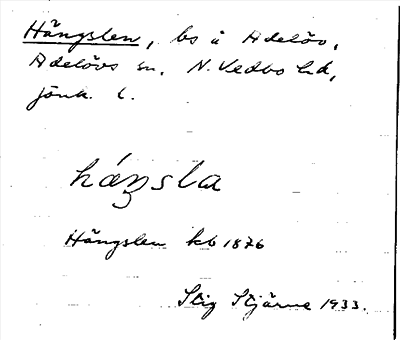 Hängslen, bs å Adelöv,
Adelövs sn. N. Vedbo hd,
Jönk. l.
háŋsla
Hängslen kb 1876
Stig Stjärne 1933.